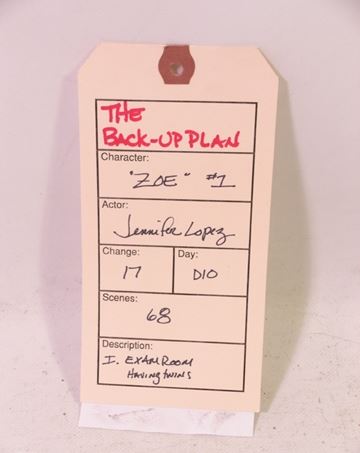 THE
BACK-UP PLAN
Character:
"ZOE" #1
Actor:
Jennifer Lopez
Change: Day:
17 D10
Scenes:
68
Description:
I. EXAM ROOM
HAVING TWINS